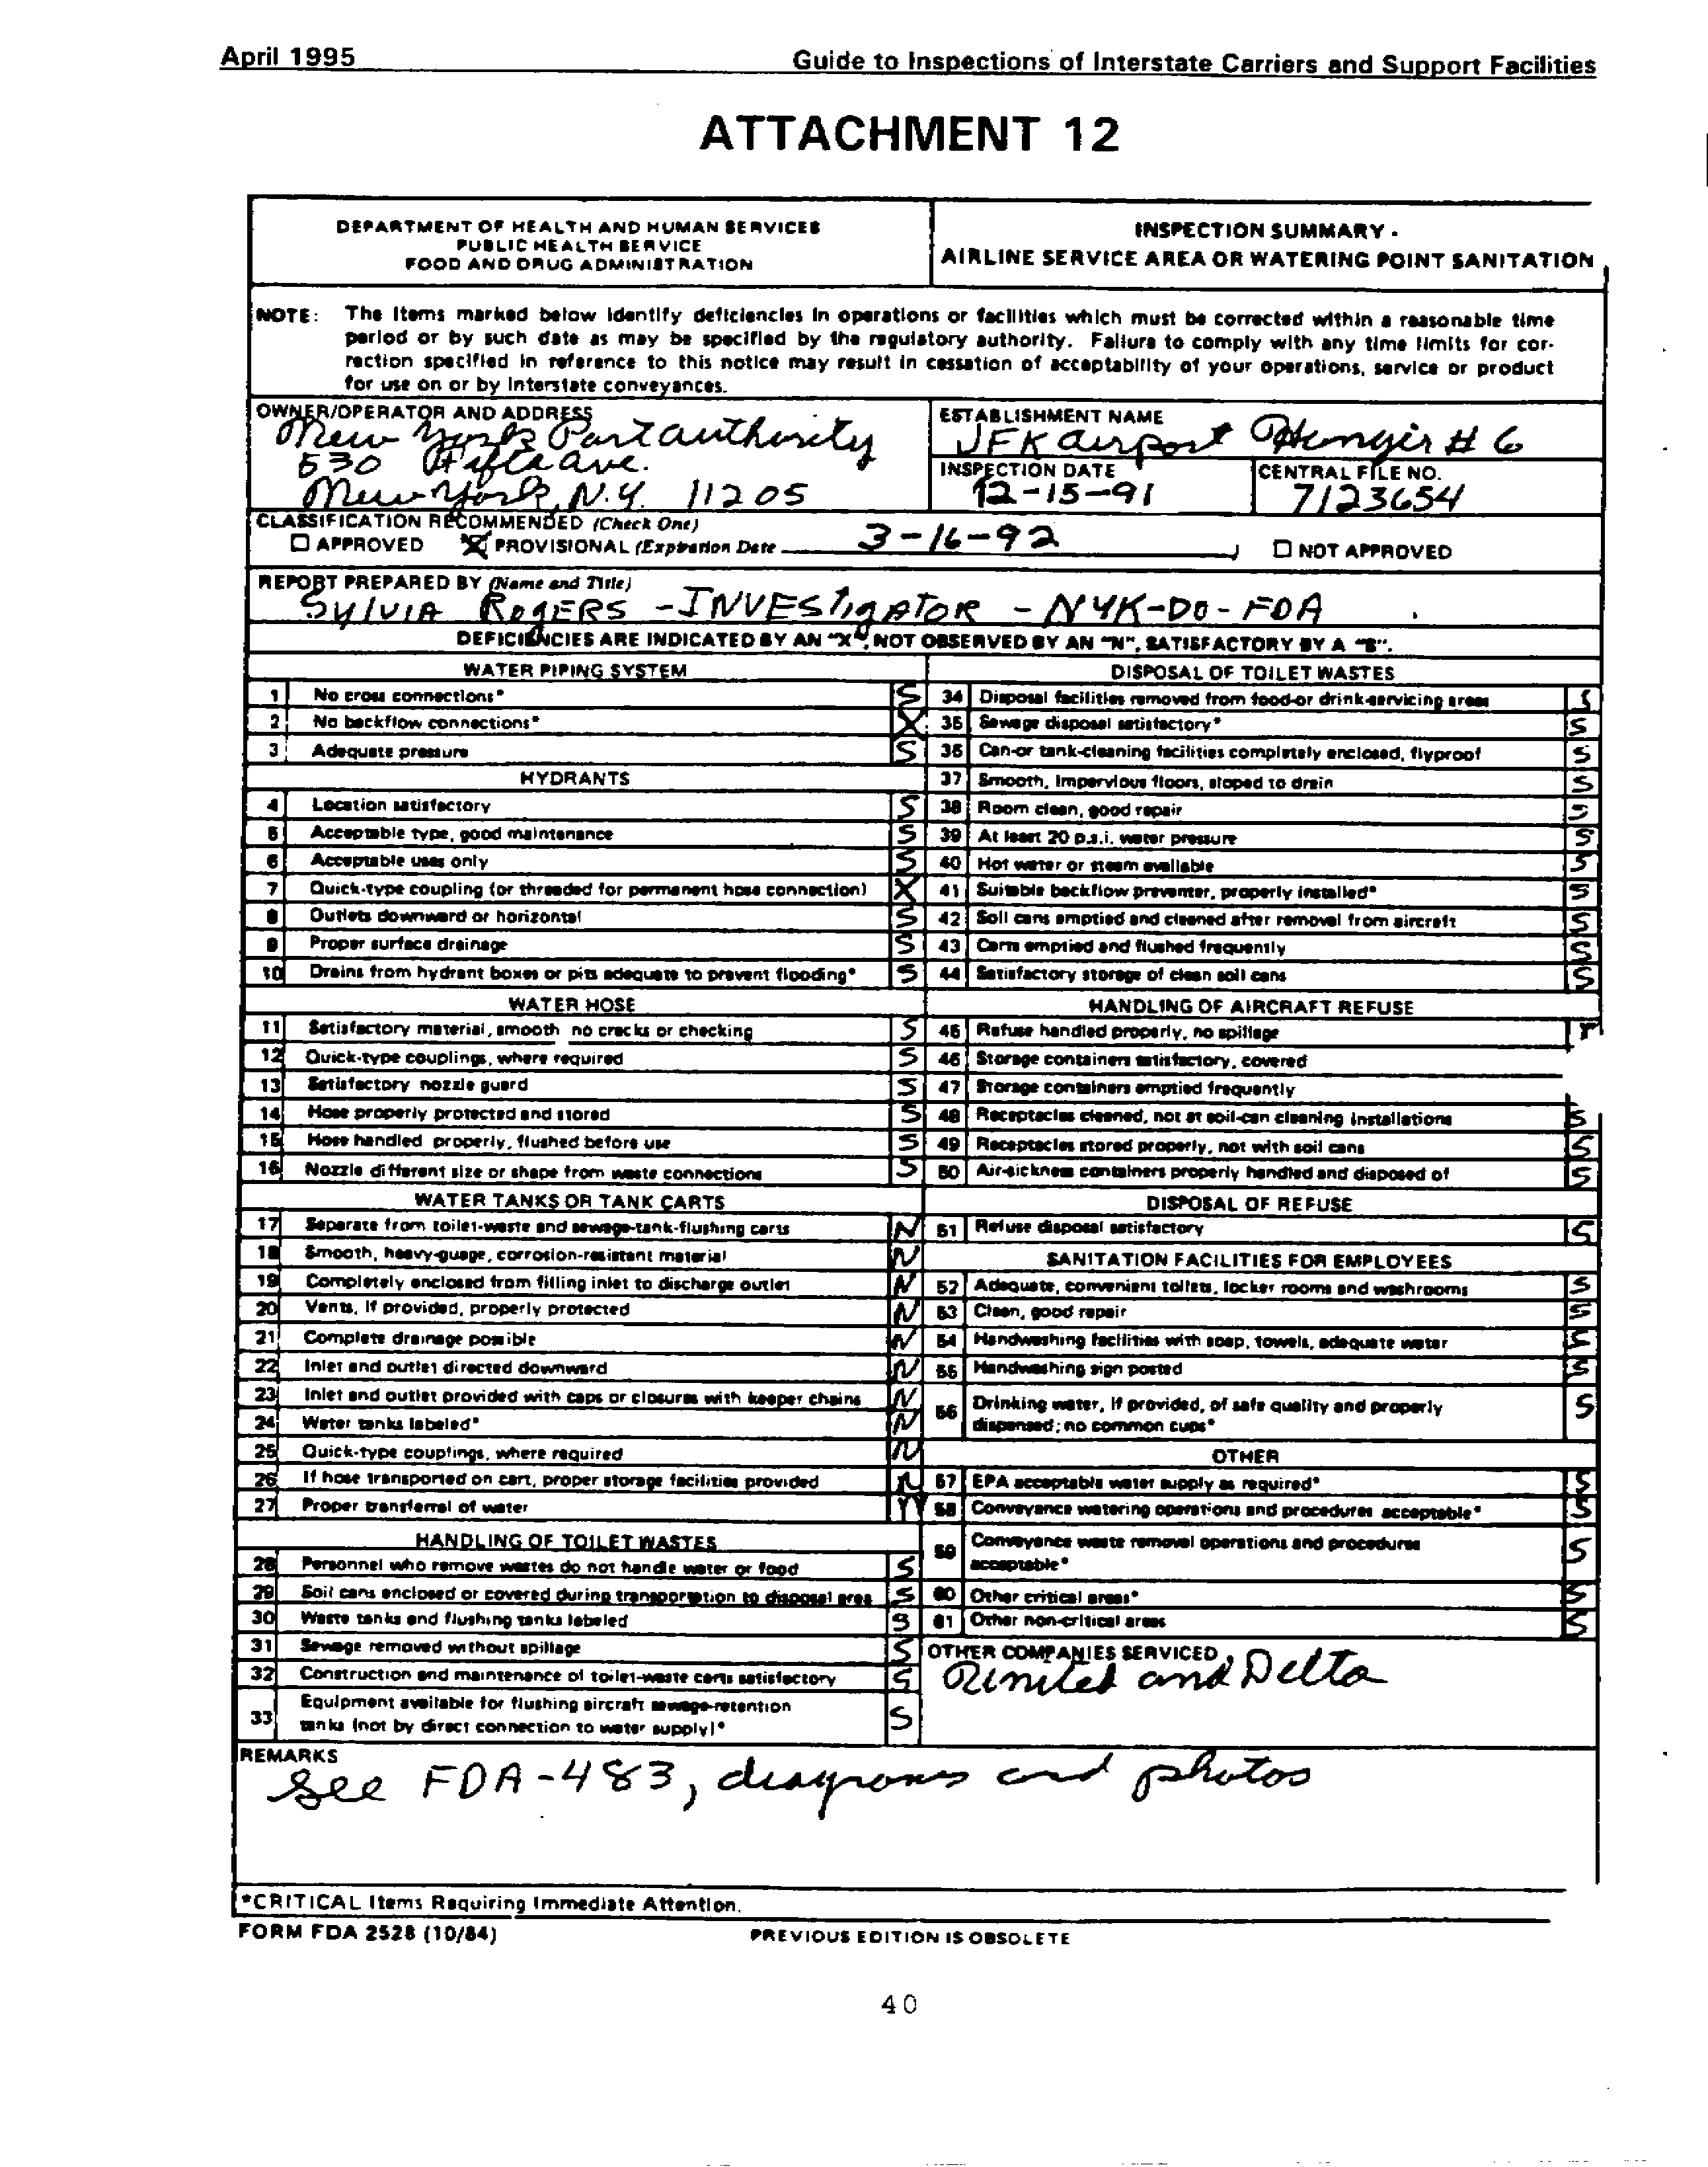 April 1995 Guide to Inspections of Interstate Carriers and Support Facilities
ATTACHMENT 12
DEPARTMENT OF HEALTH AND HUMAN SERVICES
PUBLIC HEALTH SERVICE
FOOD AND DRUG ADMINISTRATION
INSPECTION SUMMARY -
AIRLINE SERVICE AREA OR WATERING POINT SANITATION
NOTE: The items marked below identify deficiencies in operations or facilities which must be corrected within a reasonable time
period or by such date as may be specified by the regulatory authority. Failure to comply with any time limits for cor-
rection specified in reference to this notice may result in cessation of acceptability of your operations, service or product
for use on or by interstate conveyances.
OWNER/OPERATOR AND ADDRESS
New York Port authority
530 Fifth ave.
New York, N.Y. 11205
ESTABLISHMENT NAME
JFK airport Hangir # 6
INSPECTION DATE
12-15-91
CENTRAL FILE NO.
7123654
CLASSIFICATION RECOMMENDED (Check One)
☐ APPROVED ☒ PROVISIONAL (Expiration Date 3-16-92 ) ☐ NOT APPROVED
REPORT PREPARED BY (Name and Title)
SYLVIA ROGERS - INVESTIGATOR - NYK-DO-FDA
DEFICIENCIES ARE INDICATED BY AN "X", NOT OBSERVED BY AN "N", SATISFACTORY BY A "S".
WATER PIPING SYSTEM
1 No cross connections* S
2 No backflow connections* X
3 Adequate pressure S
HYDRANTS
4 Location satisfactory S
5 Acceptable type, good maintenance S
6 Acceptable uses only S
7 Quick-type coupling (or threaded for permanent hose connection) X
8 Outlets downward or horizontal S
9 Proper surface drainage S
10 Drains from hydrant boxes or pits adequate to prevent flooding* S
WATER HOSE
11 Satisfactory material, smooth no cracks or checking S
12 Quick-type couplings, where required S
13 Satisfactory nozzle guard S
14 Hose properly protected and stored S
15 Hose handled properly, flushed before use S
16 Nozzle different size or shape from waste connections S
WATER TANKS OR TANK CARTS
17 Separate from toilet-waste and sewage-tank-flushing carts N
18 Smooth, heavy-guage, corrosion-resistant material N
19 Completely enclosed from filling inlet to discharge outlet N
20 Vents, if provided, properly protected N
21 Complete drainage possible N
22 Inlet and outlet directed downward N
23 Inlet and outlet provided with caps or closures with keeper chains N
24 Water tanks labeled* N
25 Quick-type couplings, where required N
26 If hose transported on cart, proper storage facilities provided N
27 Proper transferral of water
HANDLING OF TOILET WASTES
28 Personnel who remove wastes do not handle water or food S
29 Soil cans enclosed or covered during transportation to disposal area S
30 Waste tanks and flushing tanks labeled S
31 Sewage removed without spillage S
32 Construction and maintenance of toilet-waste carts satisfactory S
33 Equipment available for flushing aircraft sewage-retention
tanks (not by direct connection to water supply)* S
DISPOSAL OF TOILET WASTES
34 Disposal facilities removed from food-or drink-servicing areas S
35 Sewage disposal satisfactory* S
36 Can-or tank-cleaning facilities completely enclosed, flyproof S
37 Smooth, impervious floors, sloped to drain S
38 Room clean, good repair S
39 At least 20 p.s.i. water pressure S
40 Hot water or steam available S
41 Suitable backflow preventer, properly installed* S
42 Soil cans emptied and cleaned after removal from aircraft S
43 Carts emptied and flushed frequently S
44 Satisfactory storage of clean soil cans S
HANDLING OF AIRCRAFT REFUSE
45 Refuse handled properly, no spillage
46 Storage containers satisfactory, covered
47 Storage containers emptied frequently
48 Receptacles cleaned, not at soil-can cleaning installations S
49 Receptacles stored properly, not with soil cans S
50 Air-sickness containers properly handled and disposed of S
DISPOSAL OF REFUSE
51 Refuse disposal satisfactory S
SANITATION FACILITIES FOR EMPLOYEES
52 Adequate, convenient toilets, locker rooms and washrooms S
53 Clean, good repair S
54 Handwashing facilities with soap, towels, adequate water S
55 Handwashing sign posted S
56 Drinking water, if provided, of safe quality and properly
dispensed; no common cups* S
OTHER
57 EPA acceptable water supply as required* S
58 Conveyance watering operations and procedures acceptable* S
59 Conveyance waste removal operations and procedures
acceptable* S
60 Other critical areas* S
61 Other non-critical areas S
OTHER COMPANIES SERVICED
United and Delta
REMARKS
See FDA-483, diagrams and photos
*CRITICAL Items Requiring Immediate Attention.
FORM FDA 2528 (10/84) PREVIOUS EDITION IS OBSOLETE
40